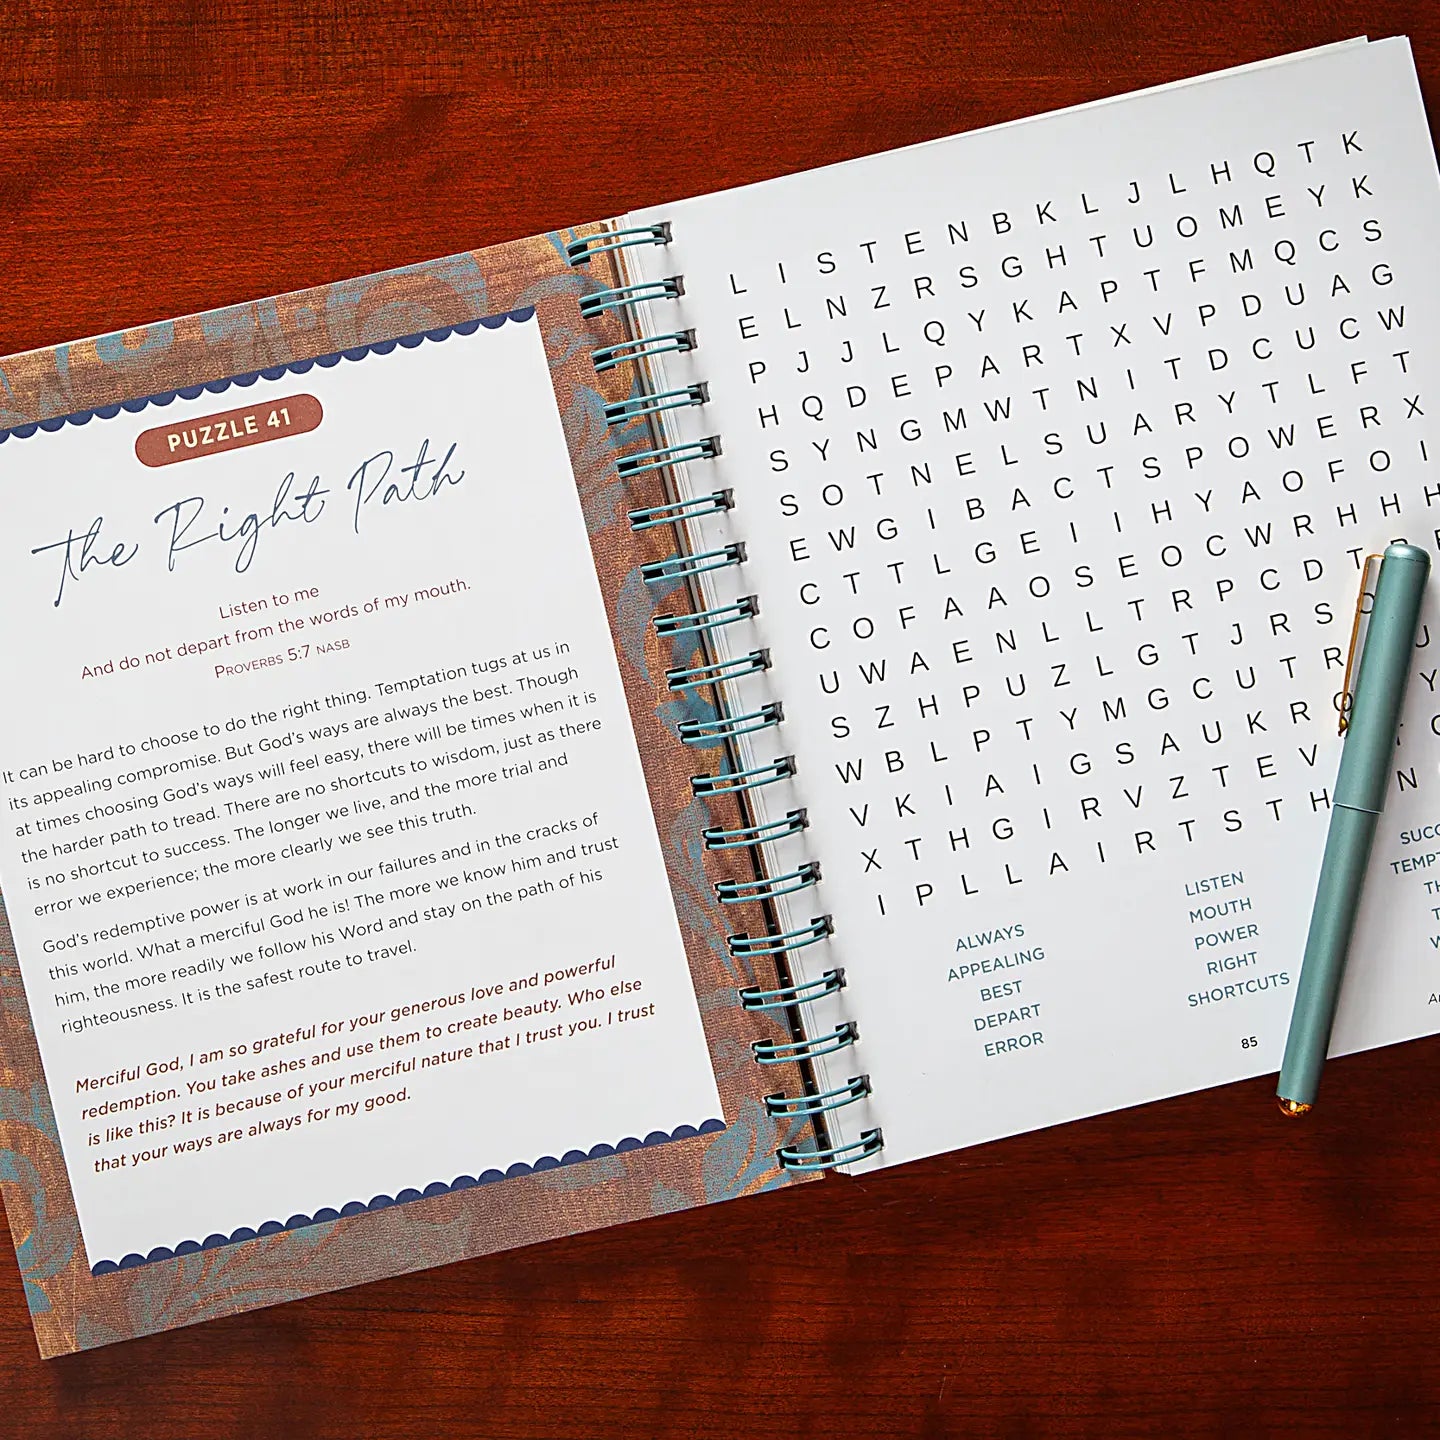 PUZZLE 41
the Right Path
Listen to me
And do not depart from the words of my mouth.
PROVERBS 5:7 NASB
It can be hard to choose to do the right thing. Temptation tugs at us in
its appealing compromise. But God's ways are always the best. Though
at times choosing God's ways will feel easy, there will be times when it is
the harder path to tread. There are no shortcuts to wisdom, just as there
is no shortcut to success. The longer we live, and the more trial and
error we experience; the more clearly we see this truth.
God's redemptive power is at work in our failures and in the cracks of
this world. What a merciful God he is! The more we know him and trust
him, the more readily we follow his Word and stay on the path of his
righteousness. It is the safest route to travel.
Merciful God, I am so grateful for your generous love and powerful
redemption. You take ashes and use them to create beauty. Who else
is like this? It is because of your merciful nature that I trust you. I trust
that your ways are always for my good.
L I S T E N B K L J L H Q T K
E L N Z R S G H T U O M E Y K
P J J L Q Y K A P T F M Q C S
H Q D E P A R T X V P D U A G
S Y N G M W T N I T D C U C W
S O T N E L S U A R Y T L F T
E W G I B A C T S P O W E R X
C T T L G E I I H Y A O F O I
C O F A A O S E O C W R H H H
U W A E N L L T R P C D T
S Z H P U Z L G T J R S
W B L P T Y M G C U T R Y
V K I A I G S A U K R
X T H G I R V Z T E V N
I P L L A I R T S T H
ALWAYS
APPEALING
BEST
DEPART
ERROR
LISTEN
MOUTH
POWER
RIGHT
SHORTCUTS
85